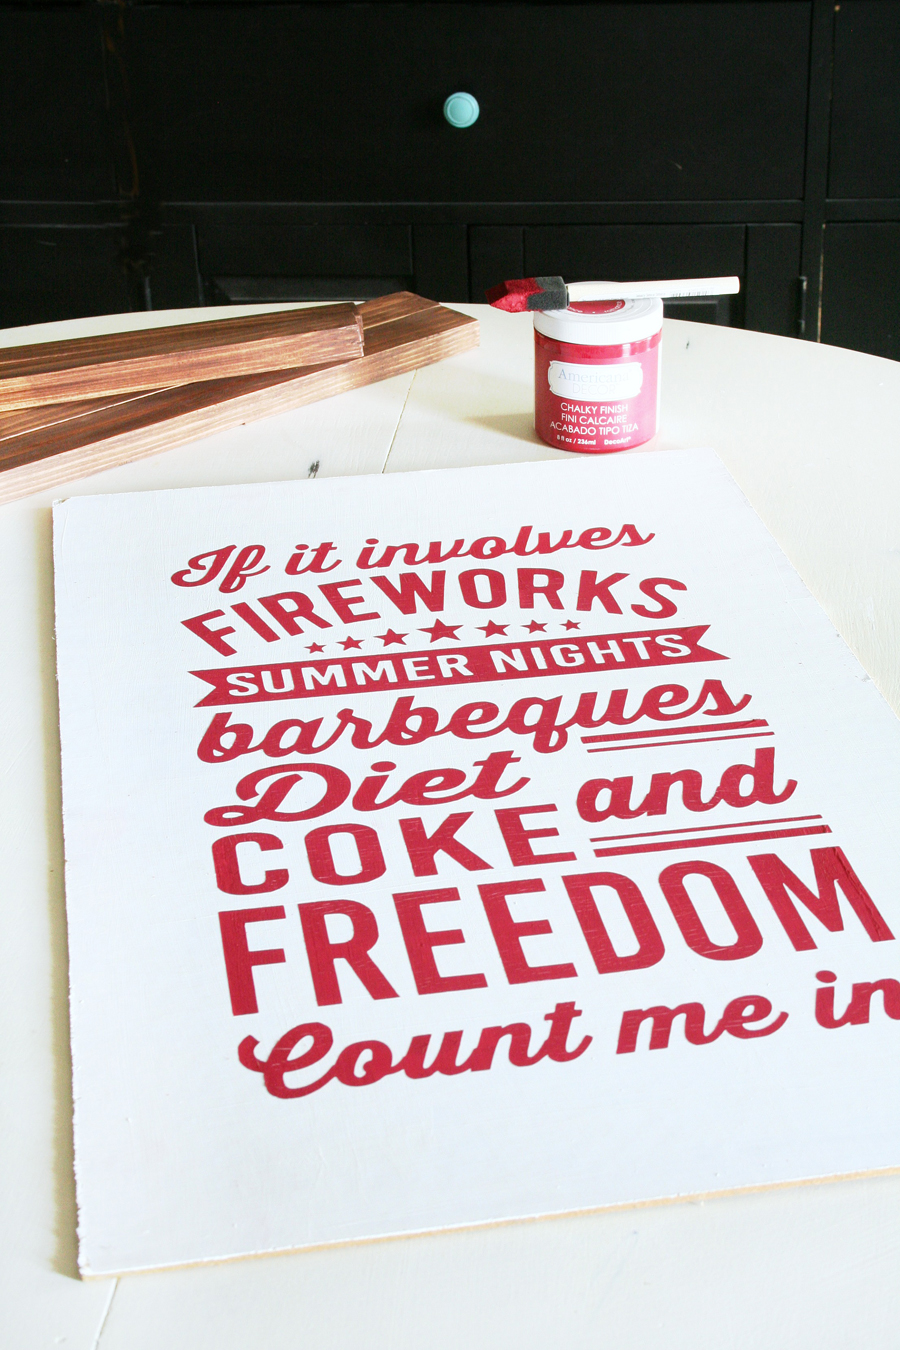 Americana
DECOR
CHALKY FINISH
FINI CALCAIRE
ACABADO TIPO TIZA
8 fl oz / 236ml DecoArt
If it involves
FIREWORKS
SUMMER NIGHTS
barbeques
Diet
COKE and
FREEDOM
Count me in